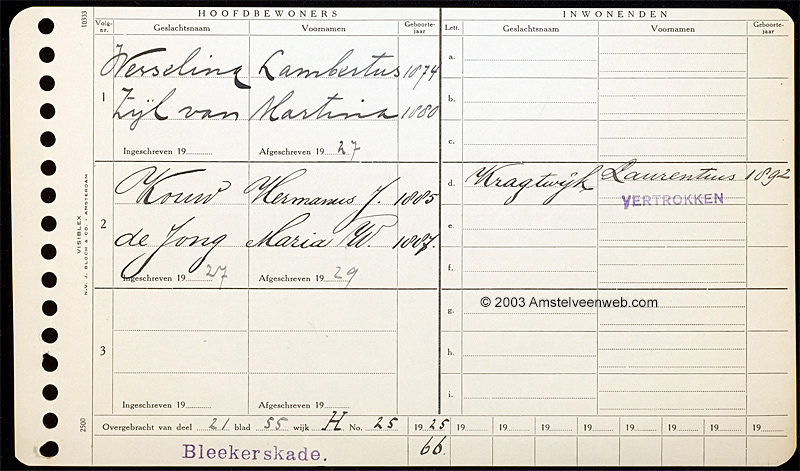 HOOFDBEWONERS INWONENDEN
Volg-nr. Geslachtsnaam Voornamen Geboorte-jaar Lett. Geslachtsnaam Voornamen Geboorte-jaar
10333
1 Wesseling Lambertus 1874 a.
Zijl van Martina 1880 b.
Ingeschreven 19 Afgeschreven 19 27 c.
2 Kouw Hermanus J. 1885 d. Kragtwijk Laurentius 1892
VERTROKKEN
de Jong Maria W. 1887. e.
Ingeschreven 19 27 Afgeschreven 19 29 f.
VISIBLEX
N.V. J. BLOCH & CO. - AMSTERDAM
© 2003 Amstelveenweb.com
3 g.
h.
Ingeschreven 19 Afgeschreven 19 i.
2500
Overgebracht van deel 21 blad 55 wijk H No. 25 19 25 19 19 19 19 19 19 19 19
Bleekerskade. 66.